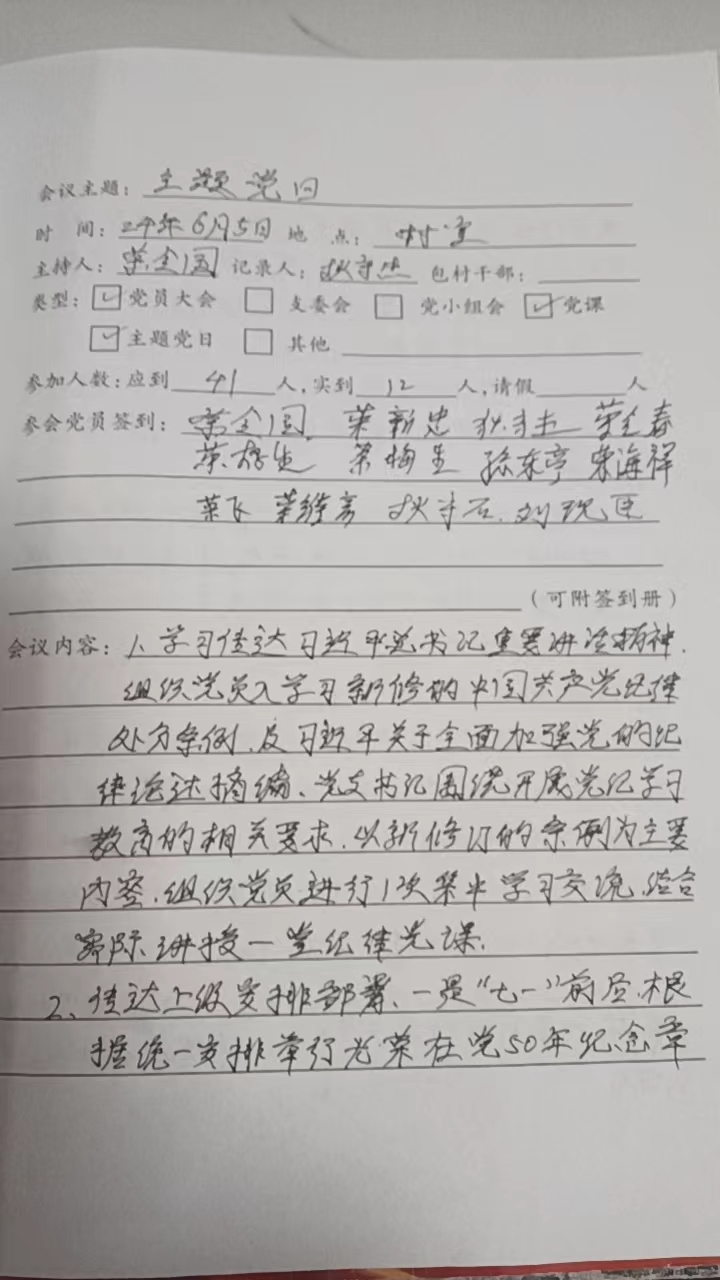 会议主题：主题党日
时 间：24年6月5日 地 点：村室
主持人：荣全国 记录人：狄守杰 包村干部：
类型：☑党员大会 □支委会 □党小组会 ☑党课
☑主题党日 □其他
参加人数：应到41人，实到12人，请假 人
参会党员签到：荣全国 荣新忠 狄守杰 荣全春
荣梅生 孙东亭 荣海祥
荣飞 荣维彦 狄守石 刘现臣
（可附签到册）
会议内容：1、学习传达习近平总书记重要讲话精神.
组织党员入学习新修的中国共产党纪律
处分条例.及习近平关于全面加强党的纪
律论述摘编、党支书记围绕开展党纪学习
教育的相关要求.以新修订的条例为主要
内容.组织党员进行1次集中学习交流.结合
实际讲授一堂纪律党课.
2、传达上级安排部署、一是“七一”前后.根
据统一安排举行光荣在党50年纪念章